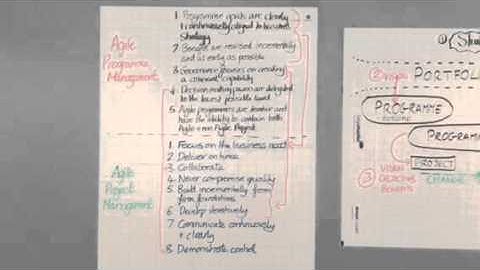 Agile
Programme
Management
1. Programme goals are clearly
+ continuously aligned to business
strategy
2. Benefits are realised incrementally
and as early as possible
3. Governance focuses on creating
a coherent capability
4. Decision making powers are delegated
to the lowest possible level
5. Agile programmes are iterative and
have the ability to contain both
Agile + non Agile
Agile
Project
Management
1. Focus on the business need
2. Deliver on time
3. Collaborate
4. Never compromise quality
5. Built incrementally from
firm foundations
6. Develop iteratively
7. Communicate continuously
+ clearly
8. Demonstrate control
①
② Vision
PORTFOL
PROGRAMME
PROGRAMM
PROJECT
③ VISION
BENEFITS
CHANGE